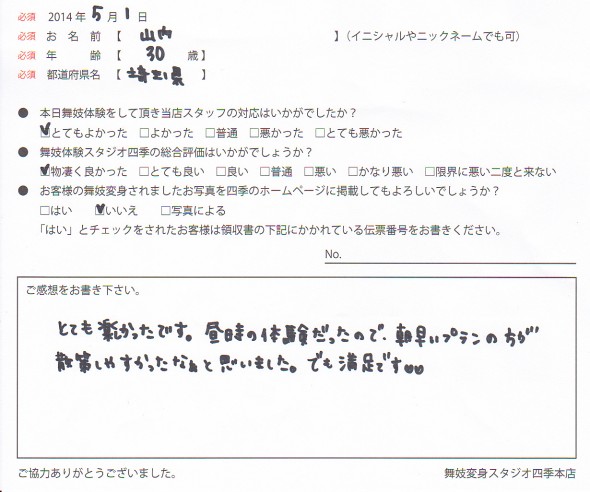 必須 2014年 5月 1日
必須 お名前【 山内 】(イニシャルやニックネームでも可)
必須 年齢【 30 歳】
必須 都道府県名【 埼玉県 】
● 本日舞妓体験をして頂き当店スタッフの対応はいかがでしたか?
☑とてもよかった □よかった □普通 □悪かった □とても悪かった
● 舞妓体験スタジオ四季の総合評価はいかがでしょうか?
☑物凄く良かった □とても良い □良い □普通 □悪い □かなり悪い □限界に悪い二度と来ない
● お客様の舞妓変身されましたお写真を四季のホームページに掲載してもよろしいでしょうか?
□はい ☑いいえ □写真による
「はい」とチェックをされたお客様は領収書の下記にかかれている伝票番号をお書きください。
No.
ご感想をお書き下さい。
とても楽しかったです。昼時の体験だったので、朝早いプランの方が
散策しやすかったなぁと思いました。でも満足です♥♥
ご協力ありがとうございました。
舞妓変身スタジオ四季本店